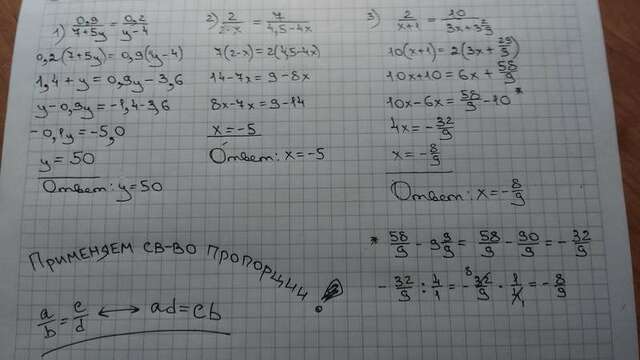 1) 0,9/(7+5y) = 0,2/(y-4)
0,2(7+5y)=0,9(y-4)
1,4+y=0,9y-3,6
y-0,9y=-1,4-3,6
-0,1y=-5,0
y=50
Ответ: y=50
2) 2/(2-x) = 7/(4,5-4x)
7(2-x)=2(4,5-4x)
14-7x=9-8x
8x-7x=9-14
x=-5
Ответ: x=-5
3) 2/(x+1) = 10/(3x+3 2/9)
10(x+1)=2(3x+29/9)
10x+10=6x+58/9
10x-6x=58/9-10*
4x=-32/9
x=-8/9
Ответ: x=-8/9
* 58/9 - 9 9/9 = 58/9 - 90/9 = -32/9
-32/9 : 4/1 = -32/9 · 1/4 = -8/9
ПРИМЕНЯЕМ СВ-ВО ПРОПОРЦИИ!
a/b = c/d ⟷ ad=cb